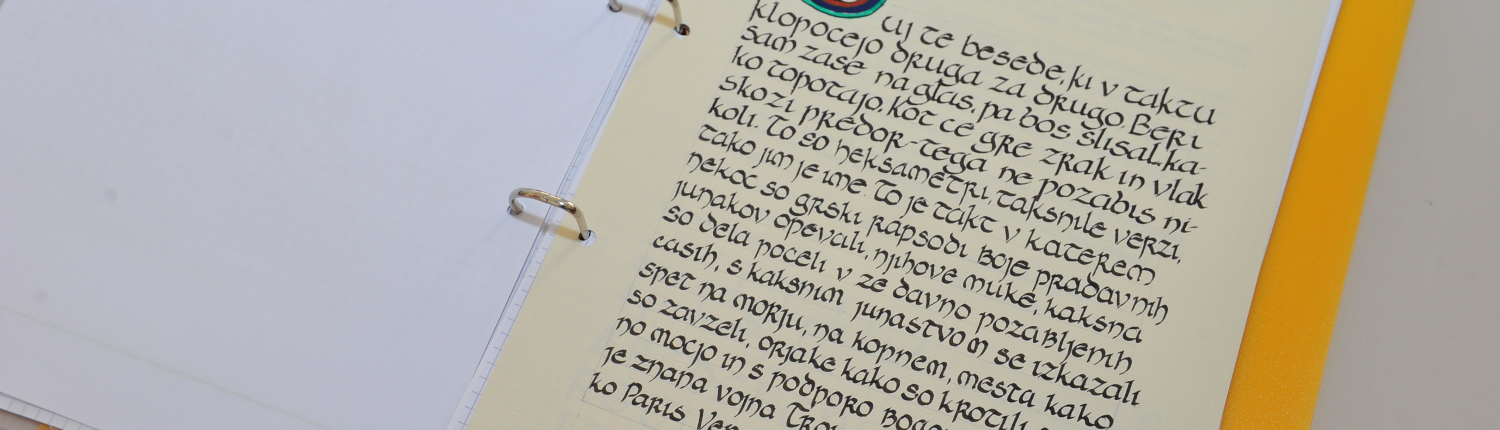 uj te besede, ki v taktu
klopocejo druga za drugo. Beri
sam zase naglas, pa bos slisal, ka-
ko topotajo. Kot ce gre zrak in vlak
skozi predor - tega ne pozabis ni-
koli. To so heksametri, taksnile verzi,
tako jim je ime. To je takt v katerem
nekoc so grski rapsodi boje pradavnih
junakov opevali, njihove muke, kaksna
so dela poceli v ze davno pozabljenih
casih, s kaksnim junastvom se izkazali
spet na morju, na kopnem, mesta kako
so zavzeli, orjake kako so krotili
no mocjo in s podporo
je znana vojna
ko Paris